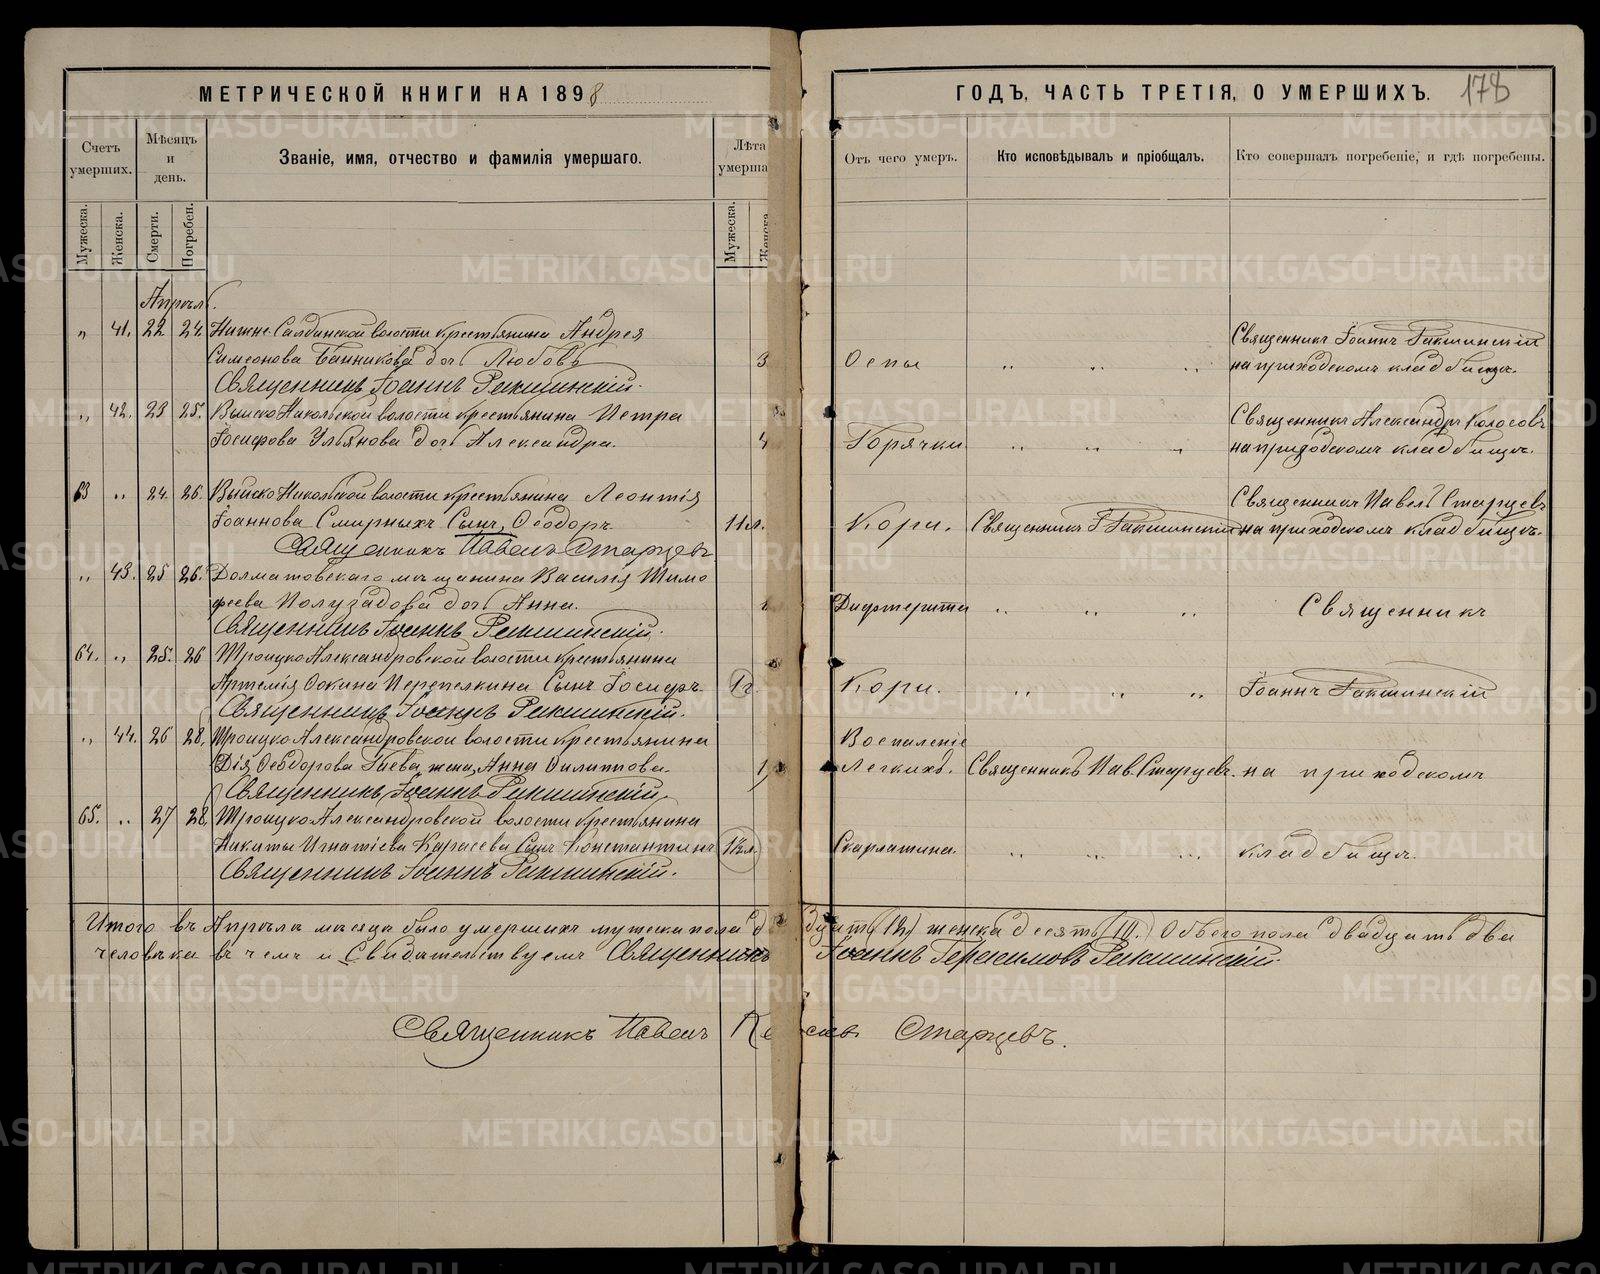 МЕТРИЧЕСКОЙ КНИГИ НА 1898
ГОДЪ, ЧАСТЬ ТРЕТІЯ, О УМЕРШИХЪ.
178
Счетъ умерших.
Мѣсяцъ и день.
Званіе, имя, отчество и фамилія умершаго.
Лѣта
умерша
Отъ чего умеръ.
Кто исповѣдывалъ и пріобщалъ.
Кто совершалъ погребеніе, и гдѣ погребены.
Мужеска.
Женска.
Смерти.
Погребен.
Мужеска.
Женска
Апрѣль.
„ 41. 22 24. Нижне-Салдинской волости крестьянина Андрея
Симеонова Банникова дочь Любовь 3 Оспы „ „ „
Священникъ Іоаннъ Ракшинскій
на приходскомъ кладбищѣ.
Священникъ Іоаннъ Ракшинскій.
„ 42. 23 25. Выйско Никольской волости крестьянина Петра
Іосифова Ульянова дочь Александра. 4 Горячки „ „ „
Священникъ Александръ Колосовъ
на приходскомъ кладбищѣ.
63 „ 24. 26. Выйско Никольской волости крестьянина Леонтія
Іоаннова Смирныхъ Сынъ Ѳеодоръ. 11 Кори. Священникъ І Ракшинскій
Священникъ Павелъ Старцевъ
на приходскомъ кладбищѣ.
Священникъ Павелъ Старцевъ
„ 43. 25 26. Долматовскаго мѣщанина Василія Тимо
феева Полузадова дочь Анна. Дифтерита „ „ „ Священникъ
Священникъ Іоаннъ Ракшинскій.
64. „ 25. 26 Троицко Александровской волости крестьянина
Артемія Ѳокина Перепелкина Сынъ Іосифъ. 1г. Кори. „ „ „ Іоаннъ Ракшинскій
Священникъ Іоаннъ Ракшинскій.
„ 44. 26 28. Троицко Александровской волости крестьянина
Ѳеодорова Гаева, жена, Анна Филиппова.
Воспаленіе
Легкихъ. Священникъ Пав. Старцевъ. на приходскомъ
Священникъ Іоаннъ Ракшинскій
65. „ 27 28. Троицко Александровской волости крестьянина
Никиты Игнатіева Карасева Сынъ Константинъ Скарлатина. „ „ „ кладбищѣ.
Священникъ Іоаннъ Ракшинскій.
Итого въ Апрѣлѣ мѣсяцѣ было умершихъ мужеска пола (12) женска десять (10.) Обоего пола двадцать два
человѣка въ чемъ и Свидѣтельствуемъ Священникъ Іоаннъ Герасимовъ Ракшинскій.
Священникъ Павелъ Старцевъ.
METRIKI.GASO-URAL.RU